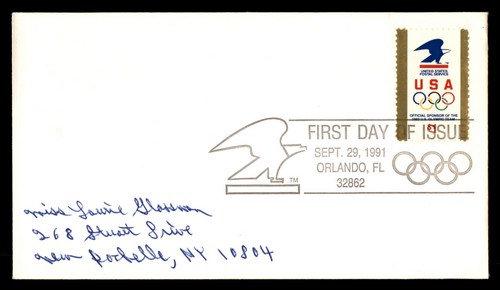 UNITED STATES
POSTAL SERVICE
USA
OFFICIAL SPONSOR OF THE
1992 U.S. OLYMPIC TEAM
FIRST DAY OF ISSUE
SEPT. 29, 1991
ORLANDO, FL
32862
TM
Miss Laurie
268 Stuart Drive
New Rochelle, NY 10804